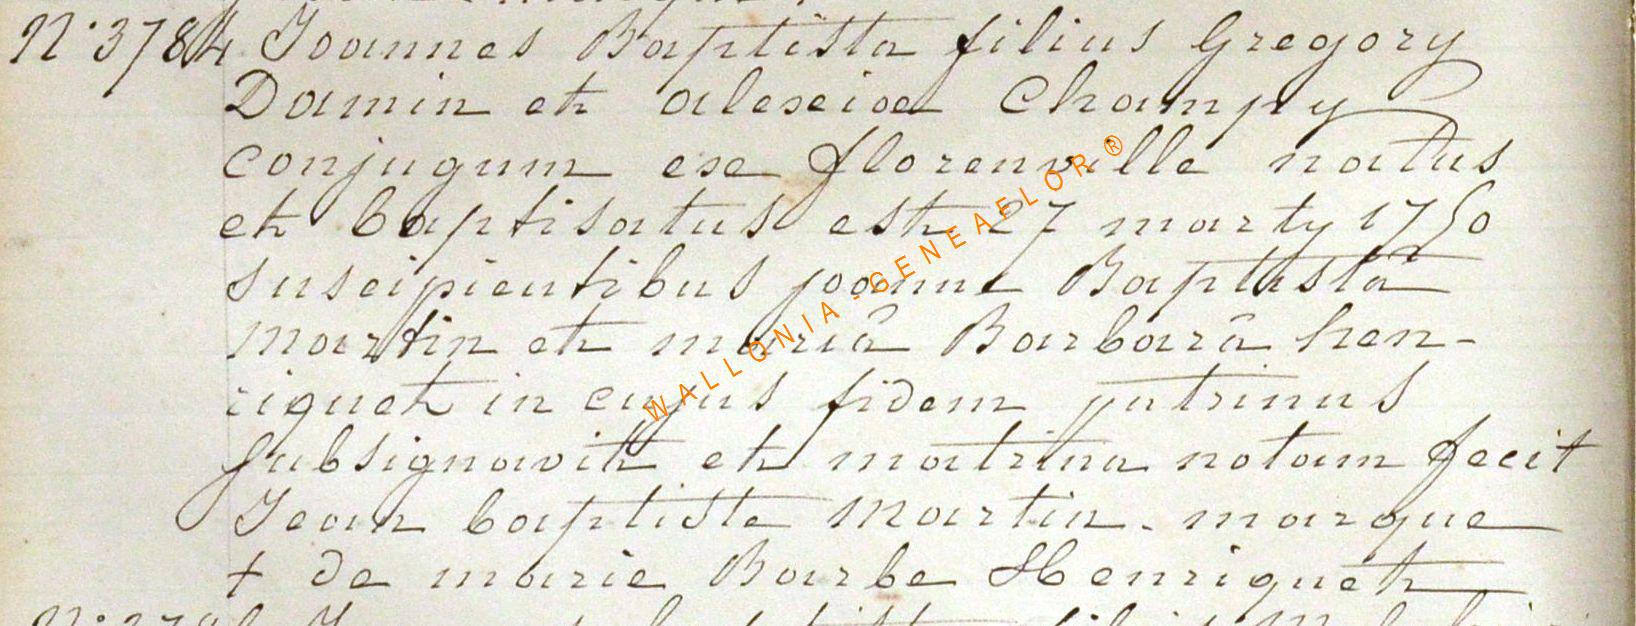 N° 3784 Joannes Baptista filius Gregory
Damin et alexiae Champy
conjugum ex florenville natus
et baptisatus est 27 marty 1750
suscipientibus joanne Baptistâ
martin et mariâ Barbarâ hen-
riquet in cujus fidem patrinus
subsignavit et matrina notam fecit
Jean baptiste martin - marque
+ de marie Barbe Henriquet
WALLONIA-GENEAFLOR ®